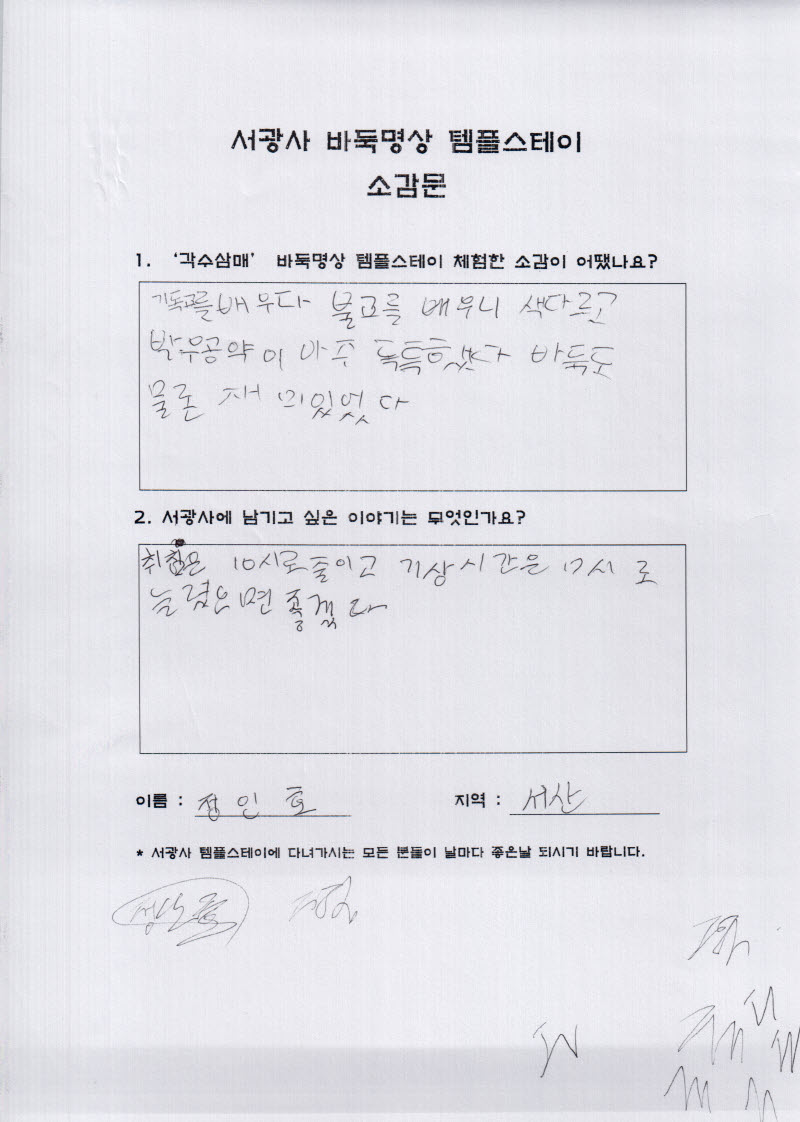 서광사 바둑명상 템플스테이
소감문
1. ‘각수삼매’ 바둑명상 템플스테이 체험한 소감이 어땠나요?
기독교를 배우다 불교를 배우니 색다르고
발우공약이 아주 독특했다 바둑도
물론 재미있었다
2. 서광사에 남기고 싶은 이야기는 무엇인가요?
취침은 10시로 줄이고 기상시간은 7시로
늘렸으면 좋겠다
이름 : 정인호
지역 : 서산
* 서광사 템플스테이에 다녀가시는 모든 분들이 날마다 좋은날 되시기 바랍니다.